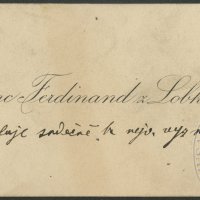 nc Ferdinand z Lobk
luje srdečně k nejv. vyz